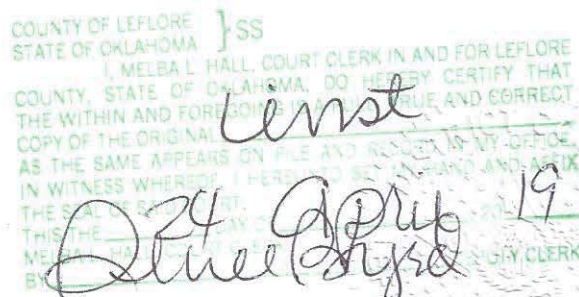 COUNTY OF LEFLORE } SS
STATE OF OKLAHOMA
I, MELBA L. HALL, COURT CLERK IN AND FOR LEFLORE
COUNTY, STATE OF OKLAHOMA, DO HEREBY CERTIFY THAT
THE WITHIN AND FOREGOING IS A TRUE AND CORRECT
COPY OF THE ORIGINAL
AS THE SAME APPEARS ON FILE AND RECORD IN MY OFFICE.
IN WITNESS WHEREOF, I HEREUNTO SET MY HAND AND AFFIX
THE SEAL OF SAID COURT.
THIS THE 24 DAY OF April 20 19
MELBA L. HALL, COURT CLERK
BY DEPUTY CLERK